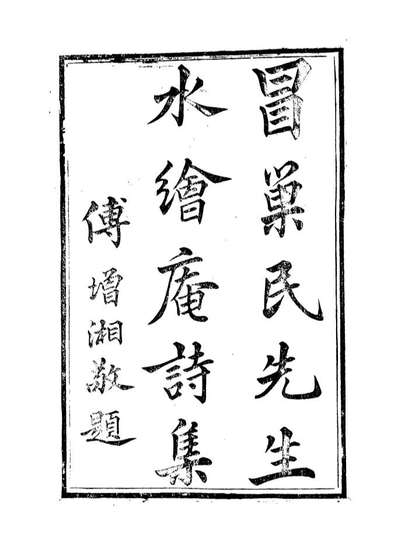 冒巢民先生
水繪庵詩集
傅增湘敬題